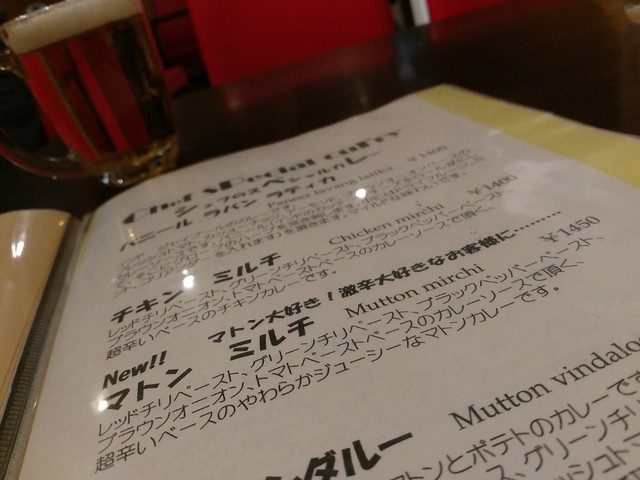 Chef Special curry
シェフのスペシャルカレー
パニール ラバン ラティカ Paneer lavang latika ¥1400
チキン ミルチ Chicken mirchi ¥1400
レッドチリペースト、グリーンチリペースト、ブラックペッパーペースト、
ブラウンオニオン、トマトペーストベースのカレーソースで頂く、
超辛いベースのチキンカレーです。
New!! マトン大好き!激辛大好きなお客様に………
マトン ミルチ Mutton mirchi ¥1450
レッドチリペースト、グリーンチリペースト、ブラックペッパーペースト、
ブラウンオニオン、トマトペーストベースのカレーソースで頂く、
超辛いベースのやわらかジューシーなマトンカレーです。
ンダルー Mutton vindaloo
マトンとポテトのカレーです
ス、グリーンチリ